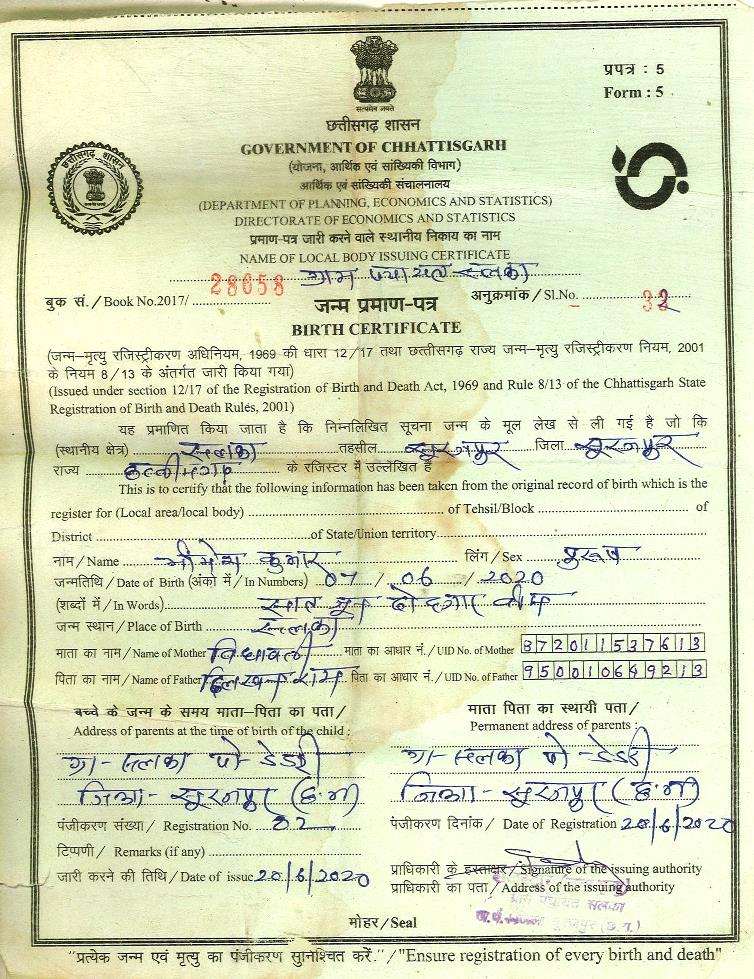 प्रपत्र : 5
Form : 5
सत्यमेव जयते
छत्तीसगढ़ शासन
छत्तीसगढ़ शासन
GOVERNMENT OF CHHATTISGARH
(योजना, आर्थिक एवं सांख्यिकी विभाग)
आर्थिक एवं सांख्यिकी संचालनालय
(DEPARTMENT OF PLANNING, ECONOMICS AND STATISTICS)
DIRECTORATE OF ECONOMICS AND STATISTICS
प्रमाण-पत्र जारी करने वाले स्थानीय निकाय का नाम
NAME OF LOCAL BODY ISSUING CERTIFICATE
ग्राम पंचायत सलका
बुक सं. / Book No.2017/ 28658 अनुक्रमांक / Sl.No. 32
जन्म प्रमाण-पत्र
BIRTH CERTIFICATE
(जन्म-मृत्यु रजिस्ट्रीकरण अधिनियम, 1969 की धारा 12/17 तथा छत्तीसगढ़ राज्य जन्म-मृत्यु रजिस्ट्रीकरण नियम, 2001
के नियम 8/13 के अंतर्गत जारी किया गया)
(Issued under section 12/17 of the Registration of Birth and Death Act, 1969 and Rule 8/13 of the Chhattisgarh State
Registration of Birth and Death Rules, 2001)
यह प्रमाणित किया जाता है कि निम्नलिखित सूचना जन्म के मूल लेख से ली गई है जो कि
(स्थानीय क्षेत्र) सलका तहसील सूरजपुर जिला सूरजपुर
राज्य छत्तीसगढ़ के रजिस्टर में उल्लेखित है
This is to certify that the following information has been taken from the original record of birth which is the
register for (Local area/local body) of Tehsil/Block of
District of State/Union territory
नाम / Name कुमार लिंग / Sex पुरूष
जन्मतिथि / Date of Birth (अंको में / In Numbers) 07 / 06 / 2020
(शब्दों में / In Words) सात जून दो हजार बीस
जन्म स्थान / Place of Birth सलका
माता का नाम / Name of Mother विद्यावती माता का आधार नं. / UID No. of Mother 872011537613
पिता का नाम / Name of Father राम पिता का आधार नं. / UID No. of Father 950010649213
बच्चे के जन्म के समय माता-पिता का पता /
Address of parents at the time of birth of the child :
माता पिता का स्थायी पता /
Permanent address of parents :
ग्रा- सलका पो- डेडरी
जिला- सूरजपुर (छ.ग)
ग्रा- सलका पो- डेडरी
जिला- सूरजपुर (छ.ग)
पंजीकरण संख्या / Registration No. 02 पंजीकरण दिनांक / Date of Registration 20/6/2020
टिप्पणी / Remarks (if any)
जारी करने की तिथि / Date of issue 20/6/2020
प्राधिकारी के हस्ताक्षर / Signature of the issuing authority
प्राधिकारी का पता / Address of the issuing authority
ग्राम पंचायत सलका
सूरजपुर (छ.ग.)
मोहर/Seal
"प्रत्येक जन्म एवं मृत्यु का पंजीकरण सुनिश्चित करें."/"Ensure registration of every birth and death"